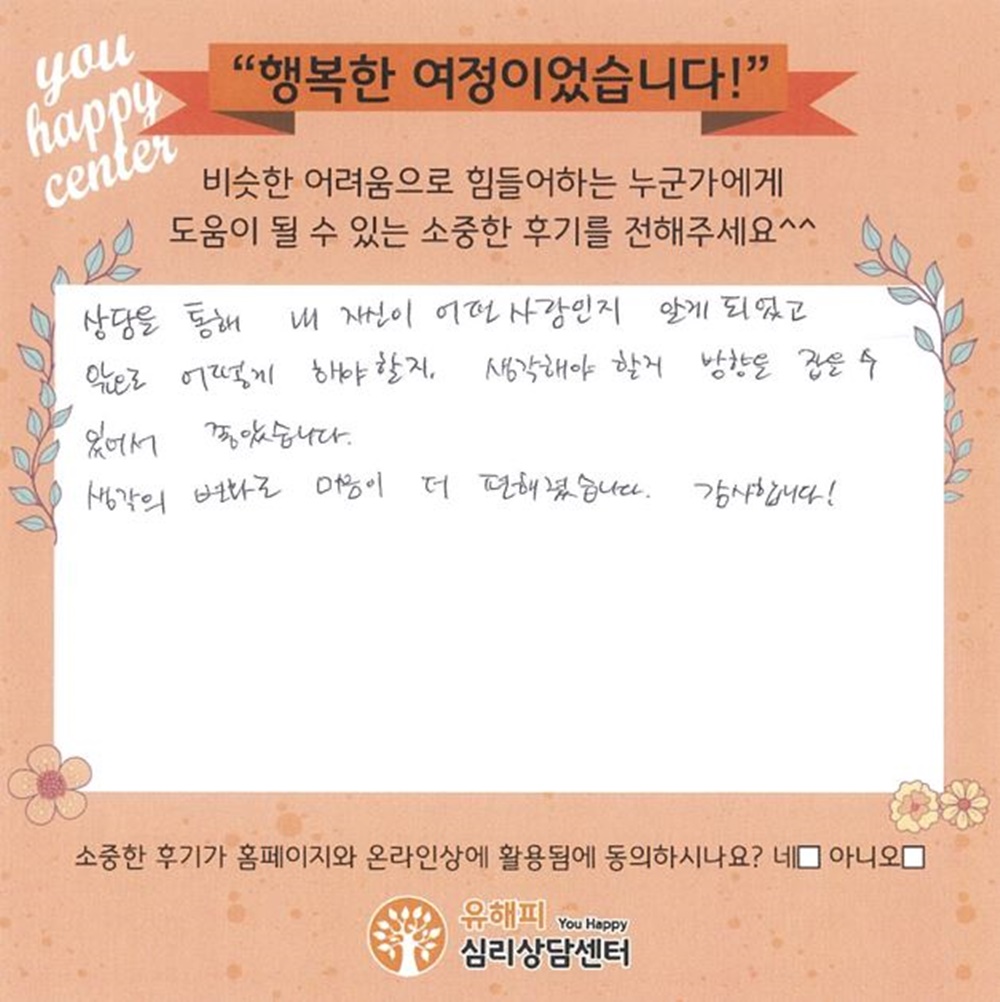 you
happy
center
“행복한 여정이었습니다!”
비슷한 어려움으로 힘들어하는 누군가에게
도움이 될 수 있는 소중한 후기를 전해주세요^^
상담을 통해 내 자신이 어떤 사람인지 알게 되었고
앞으로 어떻게 해야 할지, 생각해야 할지 방향을 잡을 수
있어서 좋았습니다.
생각의 변화로 마음이 더 편해졌습니다. 감사합니다!
소중한 후기가 홈페이지와 온라인상에 활용됨에 동의하시나요? 네□ 아니오□
유해피 You Happy
심리상담센터